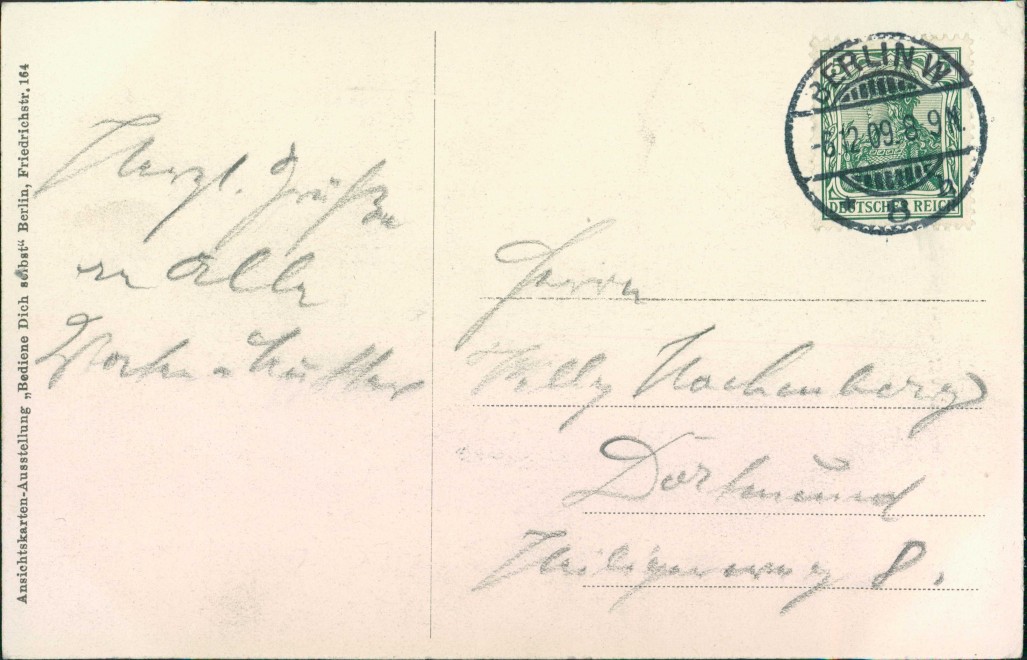 Ansichtskarten-Ausstellung „Bediene Dich selbst“ Berlin, Friedrichstr. 164
Herzl. Grüße
an alle
BERLIN W
-6.12.09. 8-9N.
* 8 h
DEUTSCHES REICH
Herrn
Willy Hachenberg
Dortmund
Heiligerweg 8.